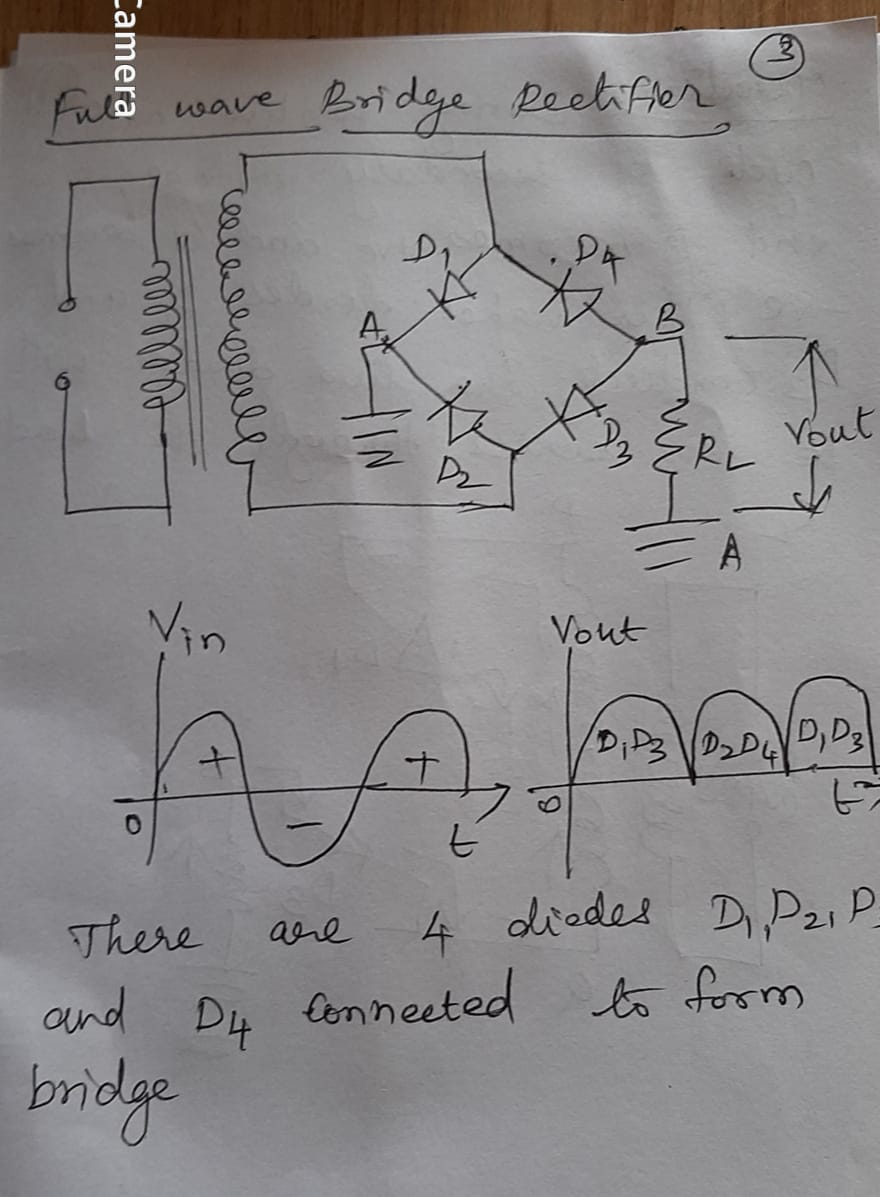 Camera
3
Full wave Bridge Rectifier
D1
D4
A
B
D2
D3
RL
Vout
A
Vin
Vout
+
+
D1D3
D2D4
D1D3
0
-
t
0
t
There are 4 diodes D1, D2,
and D4 connected to form
bridge